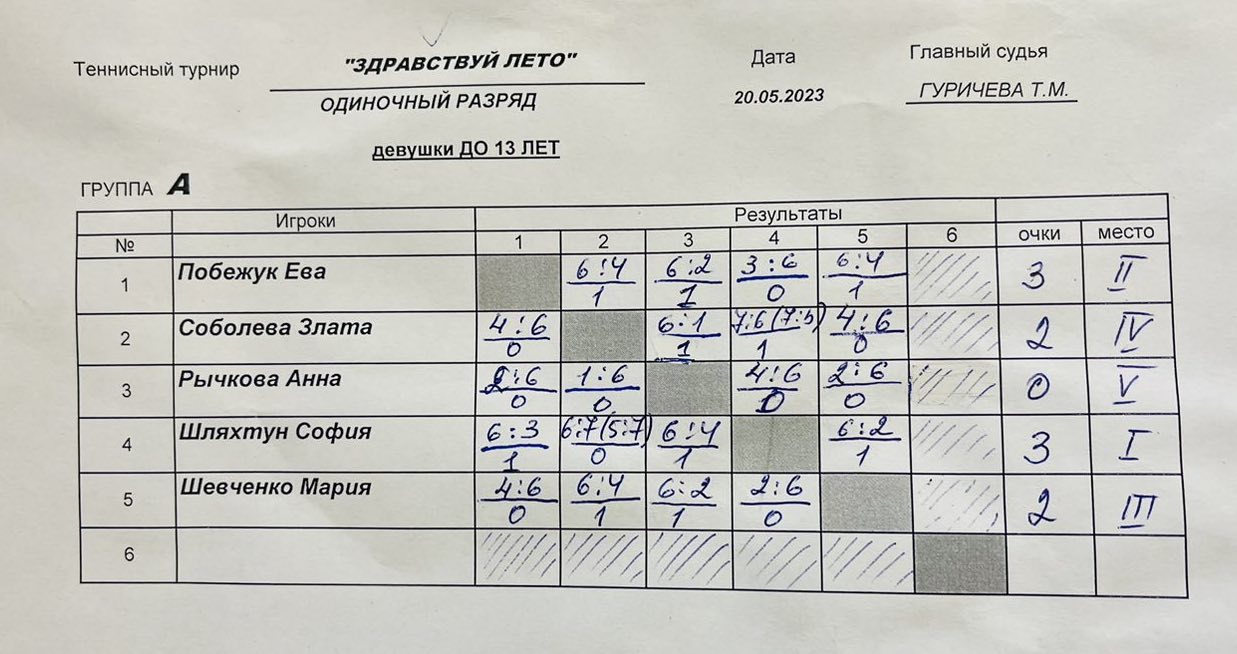 Теннисный турнир "ЗДРАВСТВУЙ ЛЕТО" Дата Главный судья
ОДИНОЧНЫЙ РАЗРЯД 20.05.2023 ГУРИЧЕВА Т.М.
девушки ДО 13 ЛЕТ
ГРУППА А
Игроки Результаты
№ 1 2 3 4 5 6 очки место
1 Побежук Ева 6:4 1 6:2 1 3:6 0 6:4 1 3 II
2 Соболева Злата 4:6 0 6:1 1 7:6 (7:5) 1 4:6 0 2 IV
3 Рычкова Анна 2:6 0 1:6 0 4:6 0 2:6 0 0 V
4 Шляхтун София 6:3 1 6:7 (5:7) 0 6:4 1 6:2 1 3 I
5 Шевченко Мария 4:6 0 6:4 1 6:2 1 2:6 0 2 III
6